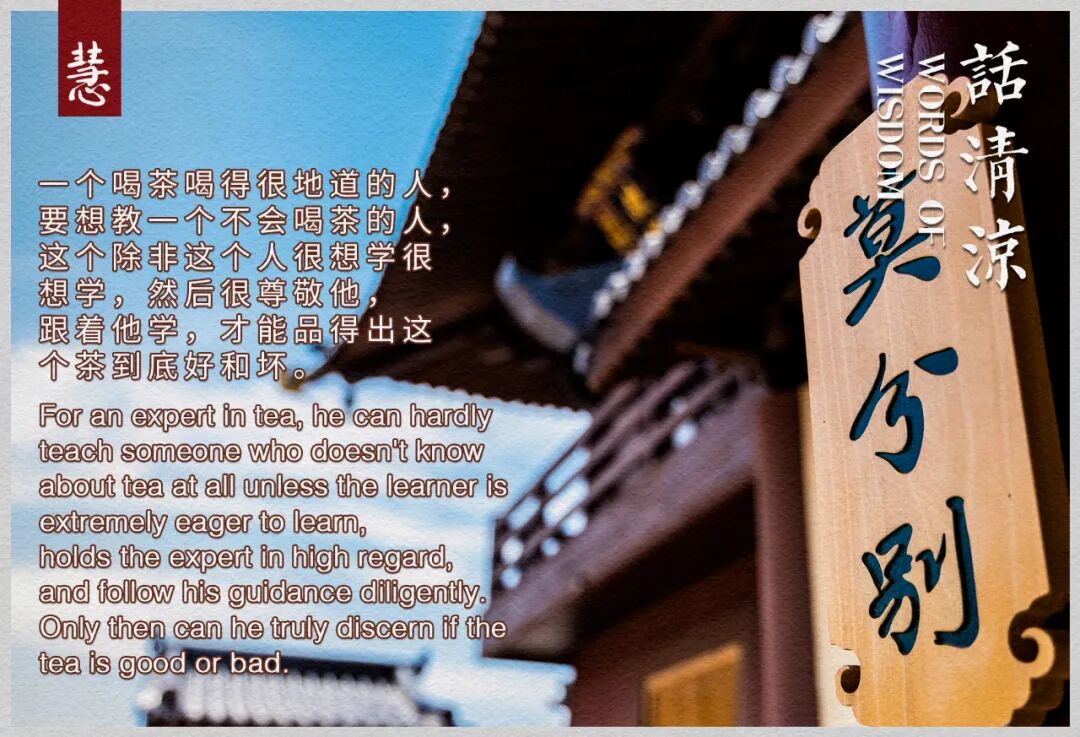 慧
話清涼
WORDS OF
WISDOM
莫分别
一个喝茶喝得很地道的人，
要想教一个不会喝茶的人，
这个除非这个人很想学很
想学，然后很尊敬他，
跟着他学，才能品得出这
个茶到底好和坏。
For an expert in tea, he can hardly
teach someone who doesn't know
about tea at all unless the learner is
extremely eager to learn,
holds the expert in high regard,
and follow his guidance diligently.
Only then can he truly discern if the
tea is good or bad.